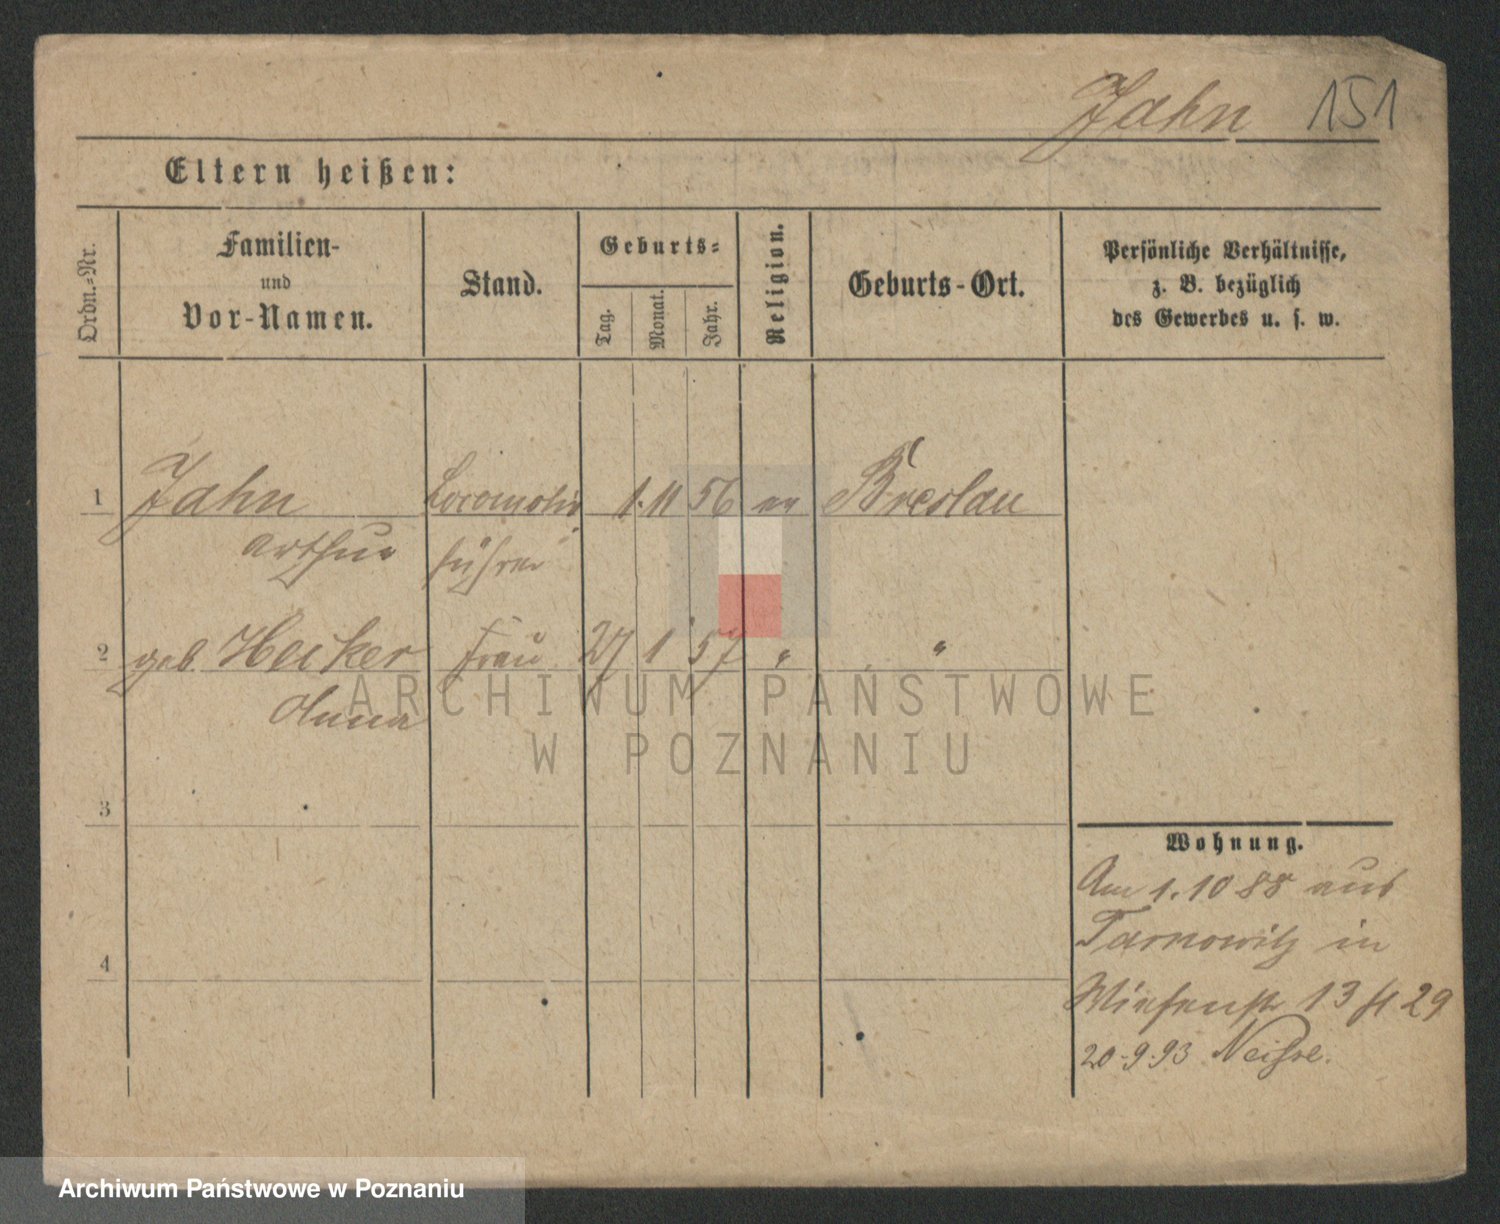 Jahn 151
Eltern heißen:
Ordn.-Nr.
Familien-
und
Vor-Namen.
Stand.
Geburts-
Tag.
Monat.
Jahr.
Religion.
Geburts-Ort.
Persönliche Verhältnisse,
z. B. bezüglich
des Gewerbes u. s. w.
1 Jahn Locomotiv 1. 11 56 ev Breslau
Arthur führer
2 geb. Hecker Frau 27 1 57 " "
Anna
3
4
Wohnung.
Am 1.10 88 aus
Tarnowitz in
Wiesenstr 13 29
20.9.93 Neisse.
ARCHIWUM PAŃSTWOWE
W POZNANIU
Archiwum Państwowe w Poznaniu